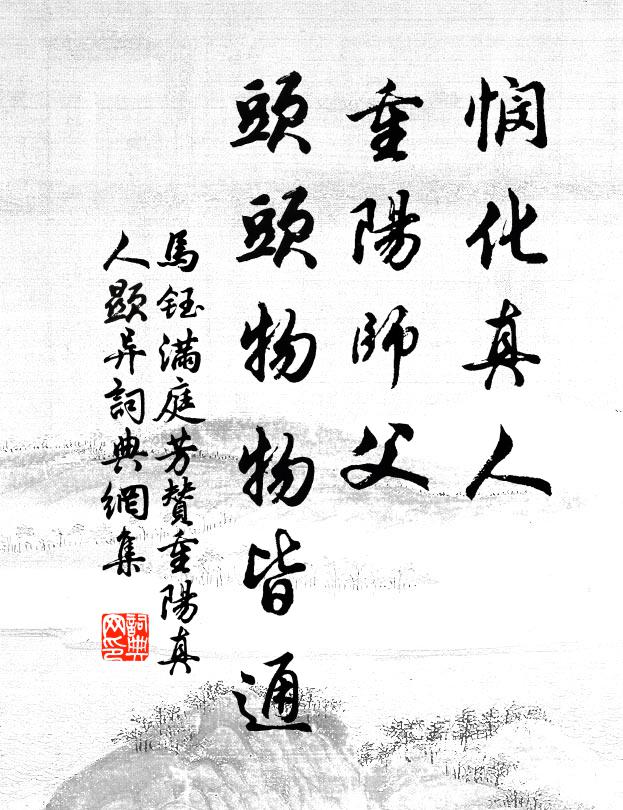 憫化真人
重陽師父
頭頭物物皆通
馬鈺滿庭芳贊重陽真
人顯异詞典網集
詞典
网印